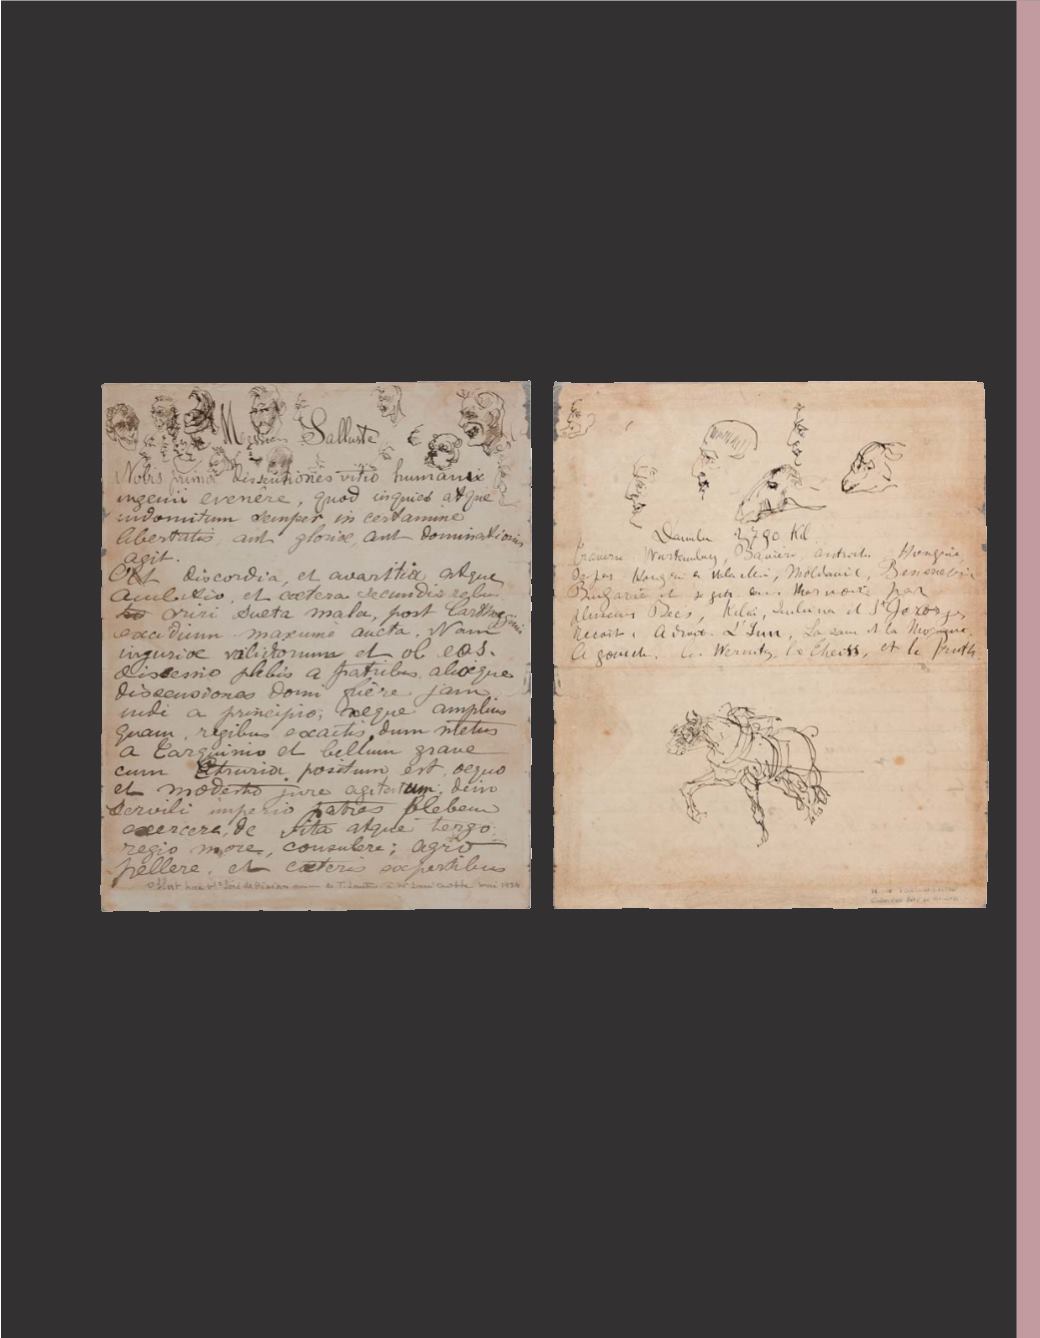 Salluste
Nobis primæ dissensiones vitio humani
ingenii evenêre, quod inquies atque
indomitum semper in certamine
libertatis, aut gloriæ, aut dominationis
agit.
discordia, et avaritia atque
et cætera secundis rebus
oriri sueta mala, post Carthaginis
excidium maxume aucta. Nam
injuriæ validiorum et ob eas.
discessio plebis a patribus, aliæque
dissensiones domi fuêre jam
inde a principio; neque amplius
quam, regibus exactis, dum metus
a Tarquinio et bellum grave
cum Etruria positum est, æquo
et modesto jure agitatum; dein
servili imperio patres plebem
exercere, de vita atque tergo,
regio more, consulere; agro
pellere, et cæteris expertibus
Danube 2790 Kil.
Traverse Wurtemberg, Bavière, Autriche Hongrie,
Hongrie Moldavie, Bessarabie
Bulgarie et se jette Mer noire par
plusieurs Becs, Kilia, Sulina et St Georges,
Reçoit: A droite. L'Inn, La save et la
A gauche. Le et le Pruth.